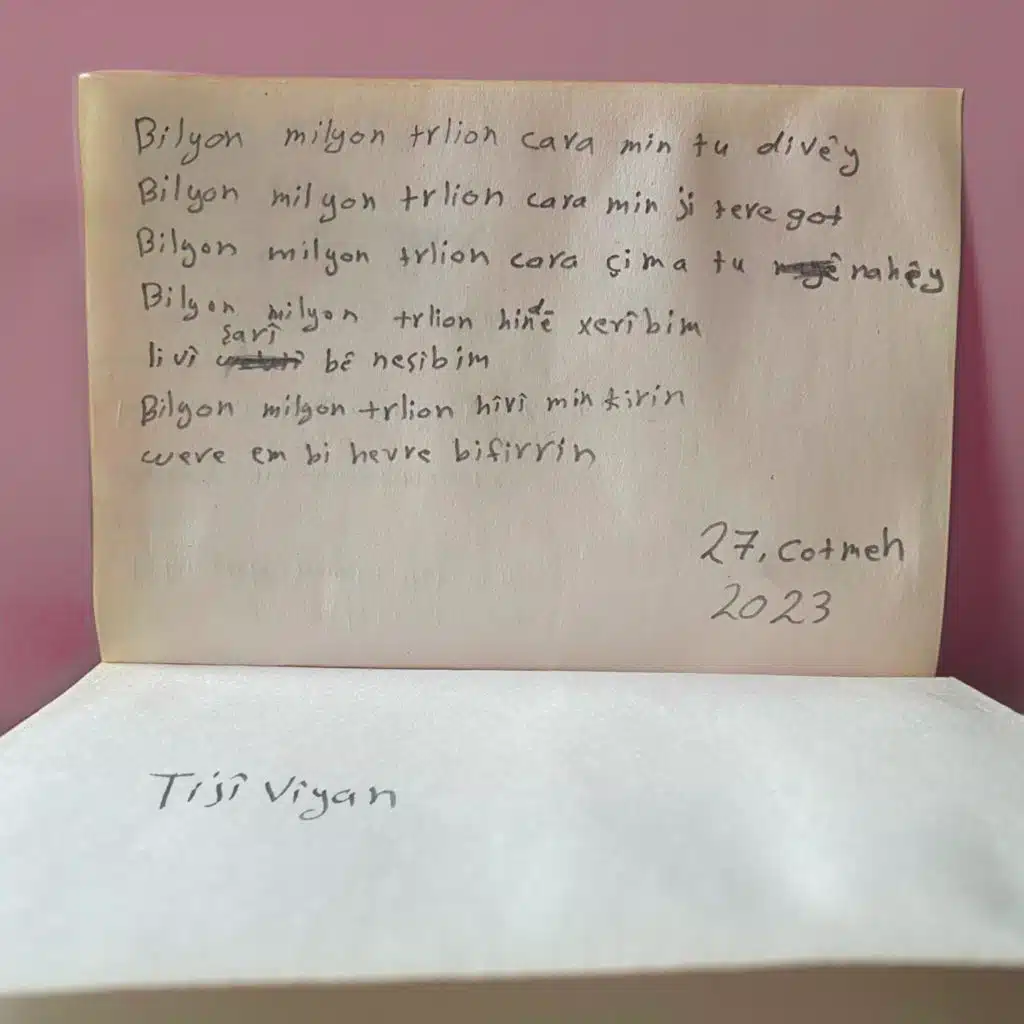 Bilyon milyon trlion cara min tu divêy
Bilyon milyon trlion cara min ji tere got
Bilyon milyon trlion cara çima tu nahêy
Bilyon milyon trlion hindê xerîbim
li vî şarî bê nesîbim
Bilyon milyon trlion hîvî min kirin
were em bi hevre bifirrîn
27, cotmeh
2023
Tijî Vîyan